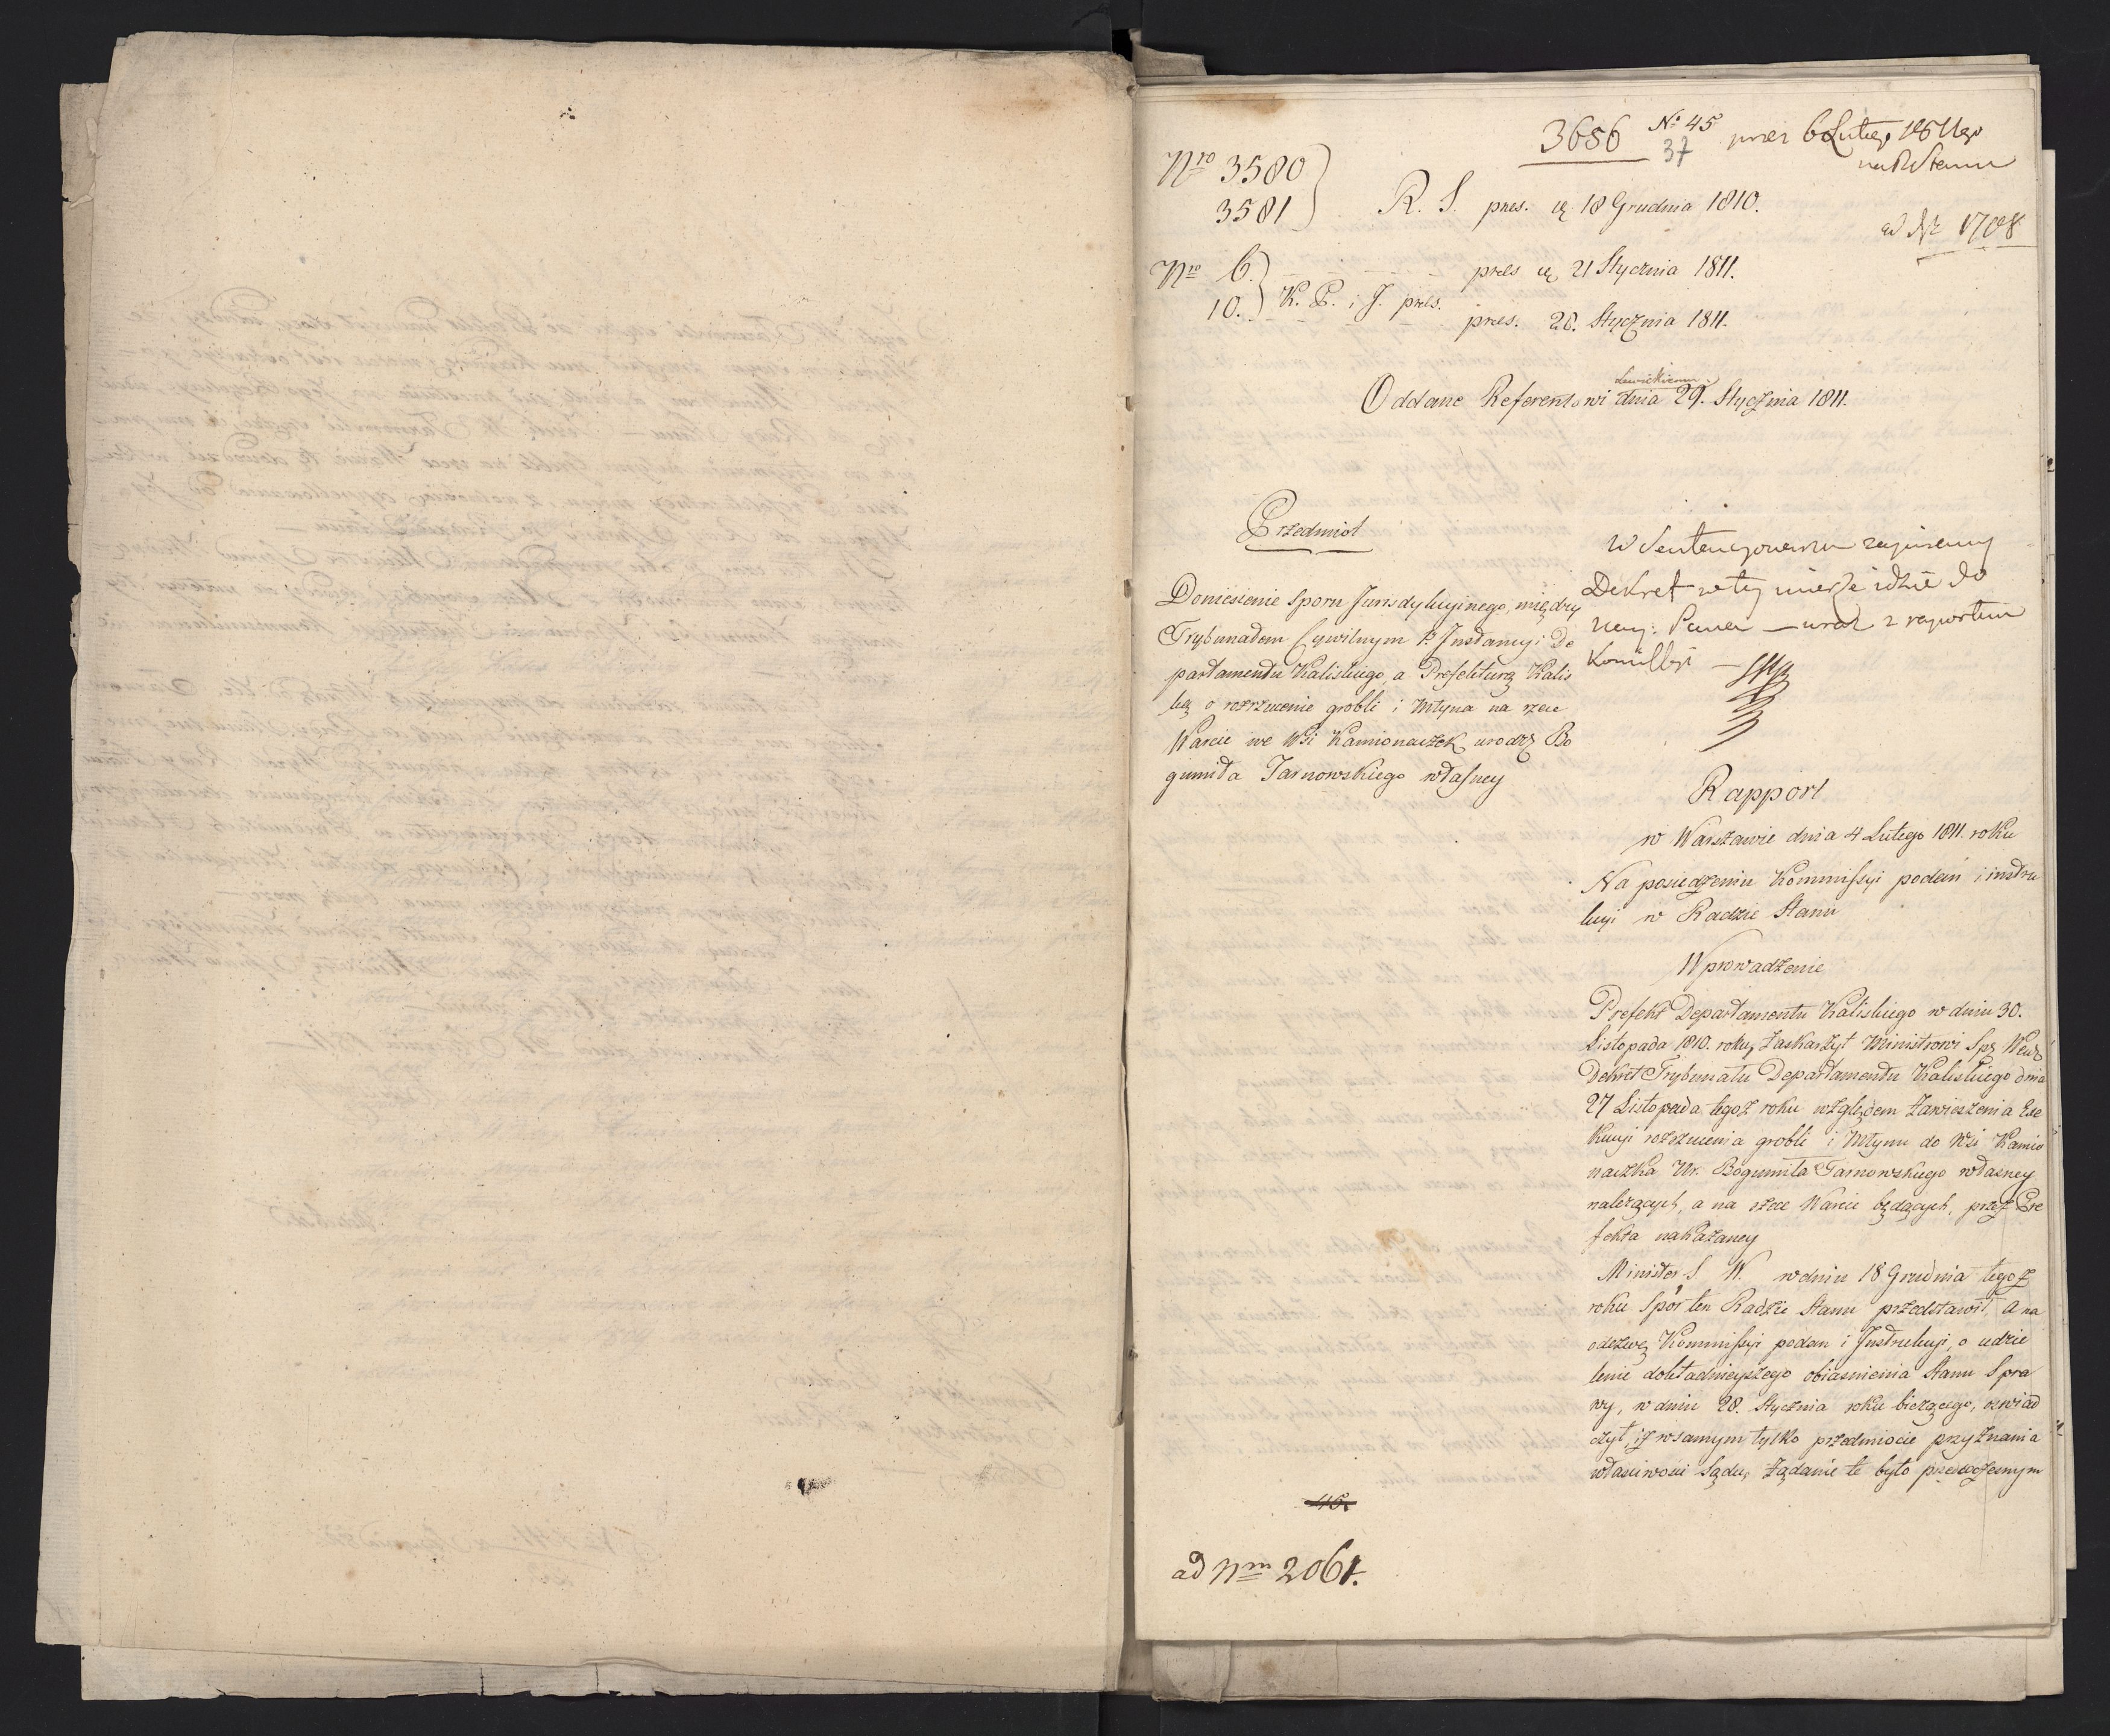 3686 No 45
37
pres 6 Lutego 1811go
na R Stanu
Nro 3580
3581
R. S. pres. d. 18 Grudnia 1810.
ad Nr 1708
Nro 6. pres d. 21 Stycznia 1811.
10. K. P. i J. pres.
pres. 28. Stycznia 1811.
Lewickiemu
Oddane Referentowi dnia 29. Stycznia 1811.
Przedmiot
Doniesienie Sporu Jurisdykcyinego, między
Trybunałem Cywilnym I. Instancyi De
partamentu Kaliskiego, a Prefekturą Kalis
ką o rozrzucenie grobli i Młyna na rzece
Warcie we Wsi Kamionaczek urodz Bo
gumiła Tarnowskiego własney
W Sentencyonarzu zapisany
Dekret w tey mierze idzie do
Nay: Pana — wraz z raportem
Kommissyi —
Rapport
w Warszawie dnia 4 Lutego 1811. roku
Na posiedzeniu Kommissyi podań i instru
kcyi w Radzie Stanu
Wprowadzenie
Prefekt Departamentu Kaliskiego w dniu 30.
Listopada 1810. roku, zaskarżył Ministrowi Spr. Wew.
Dekret Trybunału Departamentu Kaliskiego dnia
27 Listopada tegoż roku względem zawieszenia Exe
kucyi rozrzucenia grobli i Młynu do Wsi Kamio
naczka Ur. Bogumiła Tarnowskiego własney
należących, a na rzece Warcie będących, przez Pre
fekta nakazaney
Minister S. W. w dniu 18 Grudnia tegoż
roku Spór ten Radzie Stanu przedstawił, a na
odezwę Kommissyi podań i Instrukcyi, o udzie
lenie dokładnieyszego obiaśnienia Stanu Spra
wy, w dniu 28. Stycznia roku bieżącego, oświad
czył, iż w samym tylko przedmiocie przyznania
właściwości Sądu, żądanie te było
46.
ad Nm 2061.